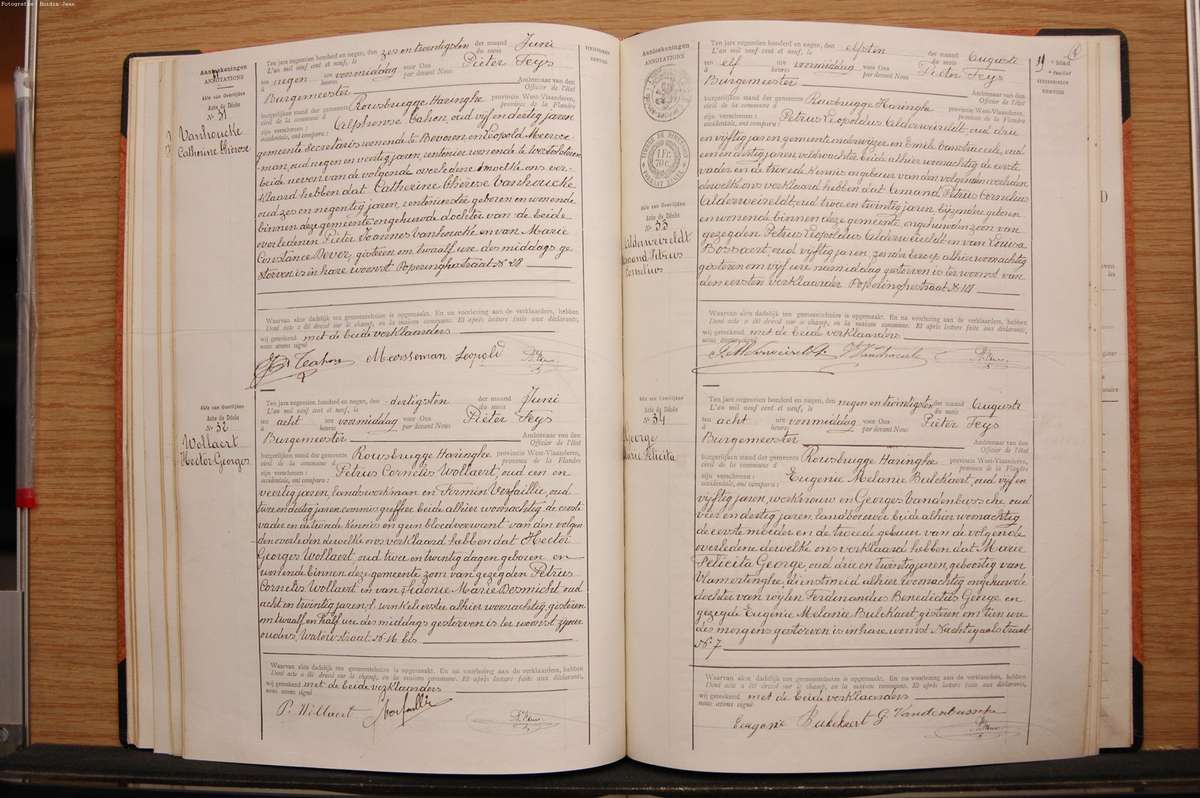 Fotografie : Boidin Jean
Aanteekeningen
ANNOTATIONS
Akte van Overlijden
Acte de Décès
Nr 31
Vanhoucke
Catherine Thérèse
Ten jare negentien honderd en negen, den zes en twintigsten der maand Juni
L'an mil neuf cent et neuf, le du mois
te negen ure voormiddag voor Ons Pieter Feys
à heures par devant Nous
Burgemeester Ambtenaar van den
Officier de l'Etat
burgerlijken stand der gemeente Rousbrugge Haringhe provincie West-Vlaanderen,
civil de la commune d province de la Flandre
zijn verschenen : Alphonse Cahon, oud vijf en dertig jaren
occidentale, ont comparu :
gemeente secretaris wonende te Beveren en Leopold Meersse-
man, oud negen en veertig jaren, rentenier wonende te Westvleteren
beide neven van de volgende overledene dewelke ons ver-
klaard hebben dat Catherine Thérèse Vanhoucke
oud zes en negentig jaren, rentenierster geboren en wonende
binnen deze gemeente, ongehuwde dochter van de beide
overledenen Pieter Joannes Vanhoucke en van Marie
Constance Dever, gisteren om twaalf ure des middags ge-
storven is in hare woonst Poperinghestraat Nr 28
Waarvan akte dadelijk ten gemeentehuize is opgemaakt. En na voorlezing aan de verklaarders, hebben
Dont acte a été dressé sur le champ, en la maison commune. Et après lecture faite aux déclarants,
wij geteekend met de beide verklaarders
nous avons signé
Meersseman Leopold
Akte van Overlijden
Acte de Décès
Nr 32
Wollaert
Hector Georges
Ten jare negentien honderd en negen, den dertigsten der maand Juni
L'an mil neuf cent et neuf, le du mois
te acht ure voormiddag voor Ons Pieter Feys
à heures par devant Nous
Burgemeester Ambtenaar van den
Officier de l'Etat
burgerlijken stand der gemeente Rousbrugge Haringhe provincie West-Vlaanderen,
civil de la commune d province de la Flandre
zijn verschenen : Petrus Cornelis Wollaert oud een en
occidentale, ont comparu :
veertig jaren, landswerkman en Firmin Verfaillie, oud
twee en dertig jaren, commis greffier beide alhier woonachtig de eerste
vader en de tweede kennis en geen bloedverwant van den volgen-
den overleden dewelke ons verklaard hebben dat Hector
Georges Wollaert, oud twee en twintig dagen, geboren en
wonende binnen deze gemeente zoon van gezegden Petrus
Cornelis Wollaert en van Sidonie Marie Desmicht oud
acht en twintig jaren, winkelierster alhier woonachtig, gisteren
om twaalf en half ure des middags gestorven is ter woonst zijner
ouders, Waterstraat Nr 16 bis
Waarvan akte dadelijk ten gemeentehuize is opgemaakt. En na voorlezing aan de verklaarders, hebben
Dont acte a été dressé sur le champ, en la maison commune. Et après lecture faite aux déclarants,
wij geteekend met de beide verklaarders
nous avons signé
P. Willaert Verfaillie
Aanteekeningen
ANNOTATIONS
1 Fr.
70 c.
Akte van Overlijden
Acte de Décès
Nr 33
Alderweireldt
Armand Petrus
Cornelius
Ten jare negentien honderd en negen, den elfsten der maand Auguste
L'an mil neuf cent et neuf, le du mois
te elf ure voormiddag voor Ons Pieter Feys
à heures par devant Nous
Burgemeester Ambtenaar van den
Officier de l'Etat
burgerlijken stand der gemeente Rousbrugge Haringhe provincie West-Vlaanderen,
civil de la commune d province de la Flandre
zijn verschenen : Petrus Leopoldus Alderweireldt, oud drie
occidentale, ont comparu :
en vijftig jaren gemeente onderwijzer en Emile Vanstraceele, oud
een en dertig jaren, veldwachter beide alhier woonachtig de eerste
vader en de tweede kennis en gebuur van den volgenden overleden
dewelke ons verklaard hebben dat Armand Petrus Cornelius
Alderweireldt, oud twee en twintig jaren, bijzonder geboren
en wonende binnen deze gemeente ongehuwden zoon van
gezegden Petrus Leopoldus Alderweireldt en van Louisa
Bossaert, oud vijftig jaren, zonder beroep alhier woonachtig
gisteren om vijf ure namiddag gestorven is ter woonst van
den eersten verklaarder Poperinghestraat Nr 111
Waarvan akte dadelijk ten gemeentehuize is opgemaakt. En na voorlezing aan de verklaarders, hebben
Dont acte a été dressé sur le champ, en la maison commune. Et après lecture faite aux déclarants,
wij geteekend met de beide verklaarders
nous avons signé
Akte van Overlijden
Acte de Décès
Nr 34
George
Marie Felicita
Ten jare negentien honderd en negen, den negen en twintigsten der maand Auguste
L'an mil neuf cent et neuf, le du mois
te acht ure voormiddag voor Ons Pieter Feys
à heures par devant Nous
Burgemeester Ambtenaar van den
Officier de l'Etat
burgerlijken stand der gemeente Rousbrugge Haringhe provincie West-Vlaanderen,
civil de la commune d province de la Flandre
zijn verschenen : Eugenie Melanie Bulckaert, oud vijf en
occidentale, ont comparu :
vijftig jaren, werkvrouw en Georges Vandenbussche oud
vier en dertig jaren, landbouwer beide alhier woonachtig
de eerste moeder en de tweede gebuur van de volgende
overledene dewelke ons verklaard hebben dat Marie
Felicita George, oud drie en twintig jaren, geboortig van
Vlamertinghe, dienstmeid alhier woonachtig ongehuwde
dochter van wijlen Ferdinandus Benedictus George en
gezegde Eugenie Melanie Bulckaert gisteren om tien ure
des morgens gestorven is in hare woonst Nachtegaalstraat
Nr 7
Waarvan akte dadelijk ten gemeentehuize is opgemaakt. En na voorlezing aan de verklaarders, hebben
Dont acte a été dressé sur le champ, en la maison commune. Et après lecture faite aux déclarants,
wij geteekend met de beide verklaarders
nous avons signé
Eugenie Bulckaert G. Vandenbussche